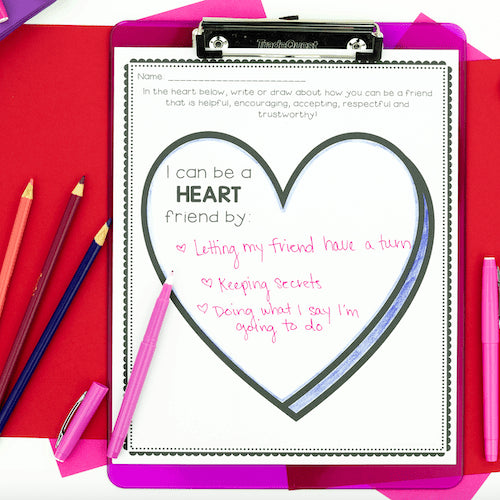 TradeQuest
Name: ____________________________
In the heart below, write or draw about how you can be a friend
that is helpful, encouraging, accepting, respectful and
trustworthy!
I can be a
HEART
friend by:
♡ Letting my friend have a turn
♡ Keeping secrets
♡ Doing what I say I'm
going to do